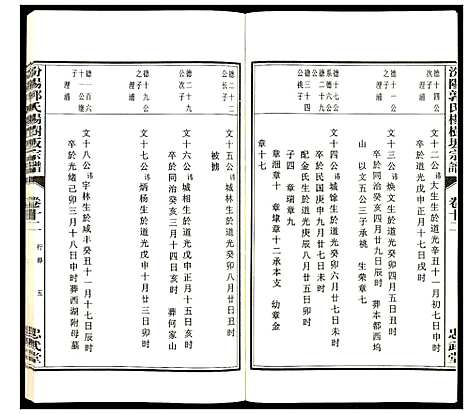 汾陽郭氏楊樹坂宗譜
卷十二
忠武堂
德十四公次子
澄浦
文十二公諱大生生於道光癸卯十一月初七日申時
卒於道光戊申正月十七日戌時
德十四公三子
澄浦
文十三公諱煥文生於道光己酉七月廿七日辰時
卒於同治癸亥 月 日 時 葬本都西塢
山 以文五公三子承祧 生榮章七
德十七公系
德十六公長子
德三十四公祧子
文十四公諱城馀生於道光癸卯六月廿八日未時
卒於民國庚申九月廿七日戌時
配金氏生於道光庚辰八月廿九日丑時
子四 章瑞章九
章細章十 章埭章十二承本支 幼章金
章十七
德二十二公長子
文十五公諱城林生於道光癸卯八月廿三日丑時
被擄
德二十九公次子
文十六公諱城相生於道光戊申正月十五日亥時
卒於同治癸亥三月十四日亥時 葬何家山
德十九公之子
澄浦
文十七公諱炳楊生於道光戊申十月廿三日卯時
德一百六十一公繼子
澄浦
文十八公諱宇林生於咸丰癸丑十一月十七日辰時
卒於光緒己卯三月十八日申時 葬西湖附母墓
汾陽郭氏楊樹坂宗譜
卷十二
行錄
五
忠武堂